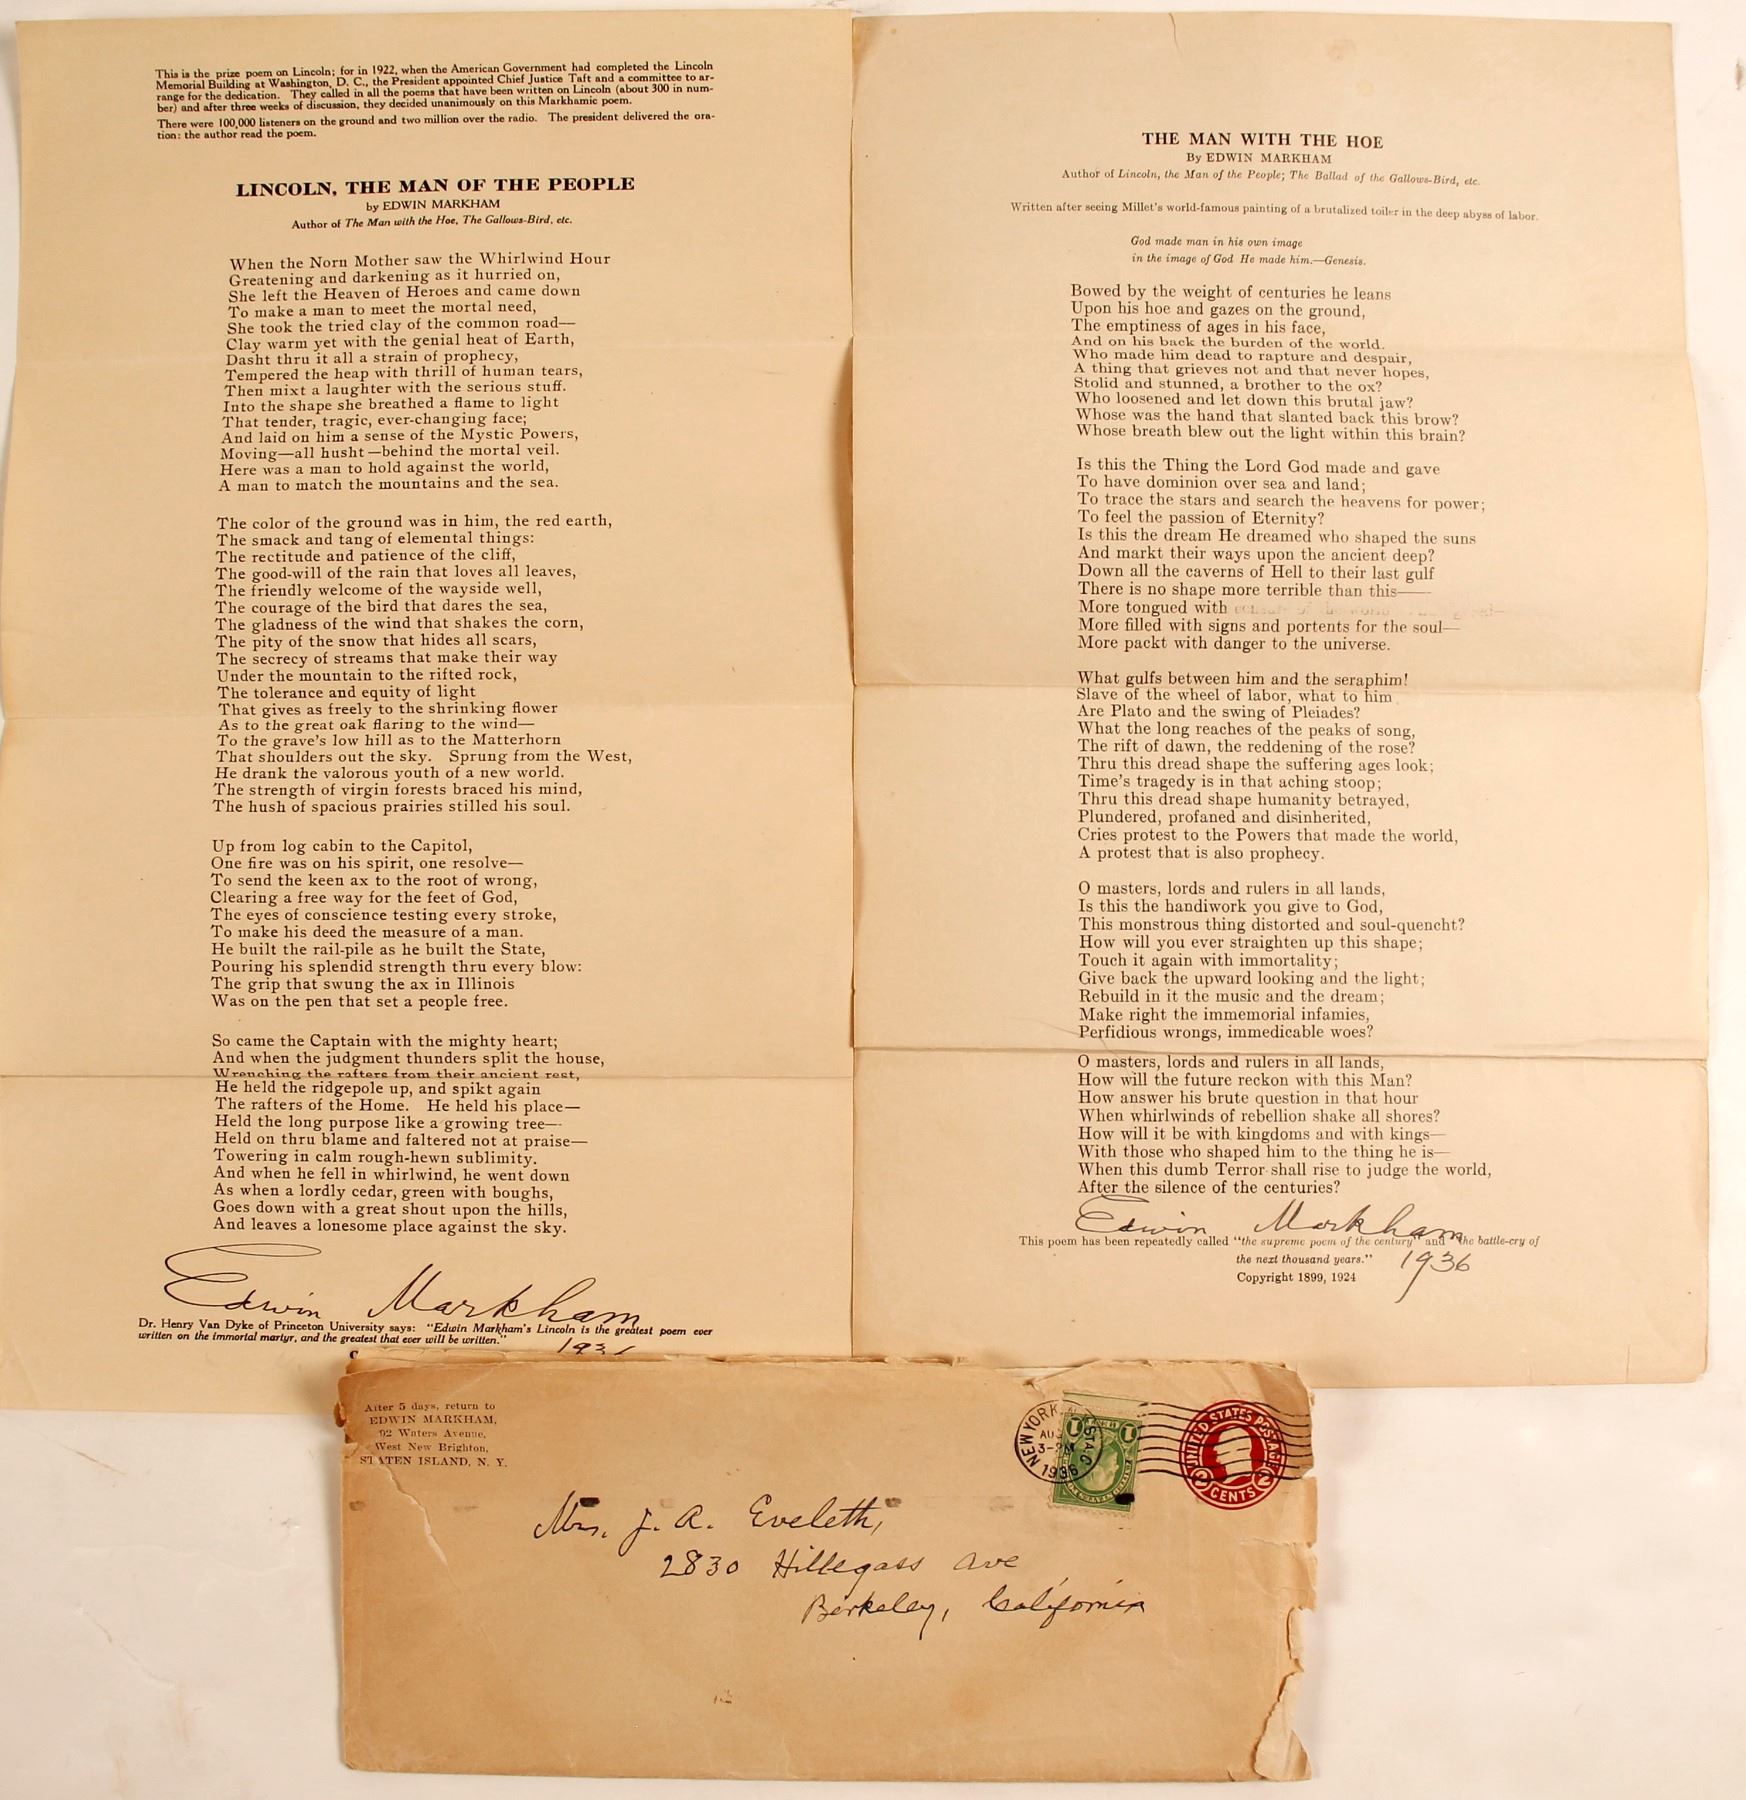 This is the prize poem on Lincoln; for in 1922, when the American Government had completed the Lincoln
Memorial Building at Washington, D. C., the President appointed Chief Justice Taft and a committee to ar-
range for the dedication. They called in all the poems that have been written on Lincoln (about 300 in num-
ber) and after three weeks of discussion, they decided unanimously on this Markhamic poem.
There were 100,000 listeners on the ground and two million over the radio. The president delivered the ora-
tion: the author read the poem.
LINCOLN, THE MAN OF THE PEOPLE
by EDWIN MARKHAM
Author of The Man with the Hoe, The Gallows-Bird, etc.
When the Norn Mother saw the Whirlwind Hour
Greatening and darkening as it hurried on,
She left the Heaven of Heroes and came down
To make a man to meet the mortal need,
She took the tried clay of the common road—
Clay warm yet with the genial heat of Earth,
Dasht thru it all a strain of prophecy,
Tempered the heap with thrill of human tears,
Then mixt a laughter with the serious stuff.
Into the shape she breathed a flame to light
That tender, tragic, ever-changing face;
And laid on him a sense of the Mystic Powers,
Moving—all husht—behind the mortal veil.
Here was a man to hold against the world,
A man to match the mountains and the sea.
The color of the ground was in him, the red earth,
The smack and tang of elemental things:
The rectitude and patience of the cliff,
The good-will of the rain that loves all leaves,
The friendly welcome of the wayside well,
The courage of the bird that dares the sea,
The gladness of the wind that shakes the corn,
The pity of the snow that hides all scars,
The secrecy of streams that make their way
Under the mountain to the rifted rock,
The tolerance and equity of light
That gives as freely to the shrinking flower
As to the great oak flaring to the wind—
To the grave's low hill as to the Matterhorn
That shoulders out the sky. Sprung from the West,
He drank the valorous youth of a new world.
The strength of virgin forests braced his mind,
The hush of spacious prairies stilled his soul.
Up from log cabin to the Capitol,
One fire was on his spirit, one resolve—
To send the keen ax to the root of wrong,
Clearing a free way for the feet of God,
The eyes of conscience testing every stroke,
To make his deed the measure of a man.
He built the rail-pile as he built the State,
Pouring his splendid strength thru every blow:
The grip that swung the ax in Illinois
Was on the pen that set a people free.
So came the Captain with the mighty heart;
And when the judgment thunders split the house,
Wrenching the rafters from their ancient rest,
He held the ridgepole up, and spikt again
The rafters of the Home. He held his place—
Held the long purpose like a growing tree—
Held on thru blame and faltered not at praise—
Towering in calm rough-hewn sublimity.
And when he fell in whirlwind, he went down
As when a lordly cedar, green with boughs,
Goes down with a great shout upon the hills,
And leaves a lonesome place against the sky.
Edwin Markham
Dr. Henry Van Dyke of Princeton University says: "Edwin Markham's Lincoln is the greatest poem ever
written on the immortal martyr, and the greatest that ever will be written."
THE MAN WITH THE HOE
By EDWIN MARKHAM
Author of Lincoln, the Man of the People; The Ballad of the Gallows-Bird, etc.
Written after seeing Millet's world-famous painting of a brutalized toiler in the deep abyss of labor.
God made man in his own image
in the image of God He made him.—Genesis.
Bowed by the weight of centuries he leans
Upon his hoe and gazes on the ground,
The emptiness of ages in his face,
And on his back the burden of the world.
Who made him dead to rapture and despair,
A thing that grieves not and that never hopes,
Stolid and stunned, a brother to the ox?
Who loosened and let down this brutal jaw?
Whose was the hand that slanted back this brow?
Whose breath blew out the light within this brain?
Is this the Thing the Lord God made and gave
To have dominion over sea and land;
To trace the stars and search the heavens for power;
To feel the passion of Eternity?
Is this the dream He dreamed who shaped the suns
And markt their ways upon the ancient deep?
Down all the caverns of Hell to their last gulf
There is no shape more terrible than this—
More tongued with
More filled with signs and portents for the soul—
More packt with danger to the universe.
What gulfs between him and the seraphim!
Slave of the wheel of labor, what to him
Are Plato and the swing of Pleiades?
What the long reaches of the peaks of song,
The rift of dawn, the reddening of the rose?
Thru this dread shape the suffering ages look;
Time's tragedy is in that aching stoop;
Thru this dread shape humanity betrayed,
Plundered, profaned and disinherited,
Cries protest to the Powers that made the world,
A protest that is also prophecy.
O masters, lords and rulers in all lands,
Is this the handiwork you give to God,
This monstrous thing distorted and soul-quencht?
How will you ever straighten up this shape;
Touch it again with immortality;
Give back the upward looking and the light;
Rebuild in it the music and the dream;
Make right the immemorial infamies,
Perfidious wrongs, immedicable woes?
O masters, lords and rulers in all lands,
How will the future reckon with this Man?
How answer his brute question in that hour
When whirlwinds of rebellion shake all shores?
How will it be with kingdoms and with kings—
With those who shaped him to the thing he is—
When this dumb Terror shall rise to judge the world,
After the silence of the centuries?
Edwin Markham
This poem has been repeatedly called "the supreme poem of the century" and "the battle-cry of
the next thousand years." 1936
Copyright 1899, 1924
After 5 days, return to
EDWIN MARKHAM,
92 Waters Avenue,
West New Brighton,
STATEN ISLAND, N. Y.
NEW YORK, N.Y. STA. C
AUG
3-PM
1936
UNITED STATES POSTAGE
2 CENTS 2
Mrs. J. A. Eveleth,
2830 Hillegass Ave
Berkeley, California